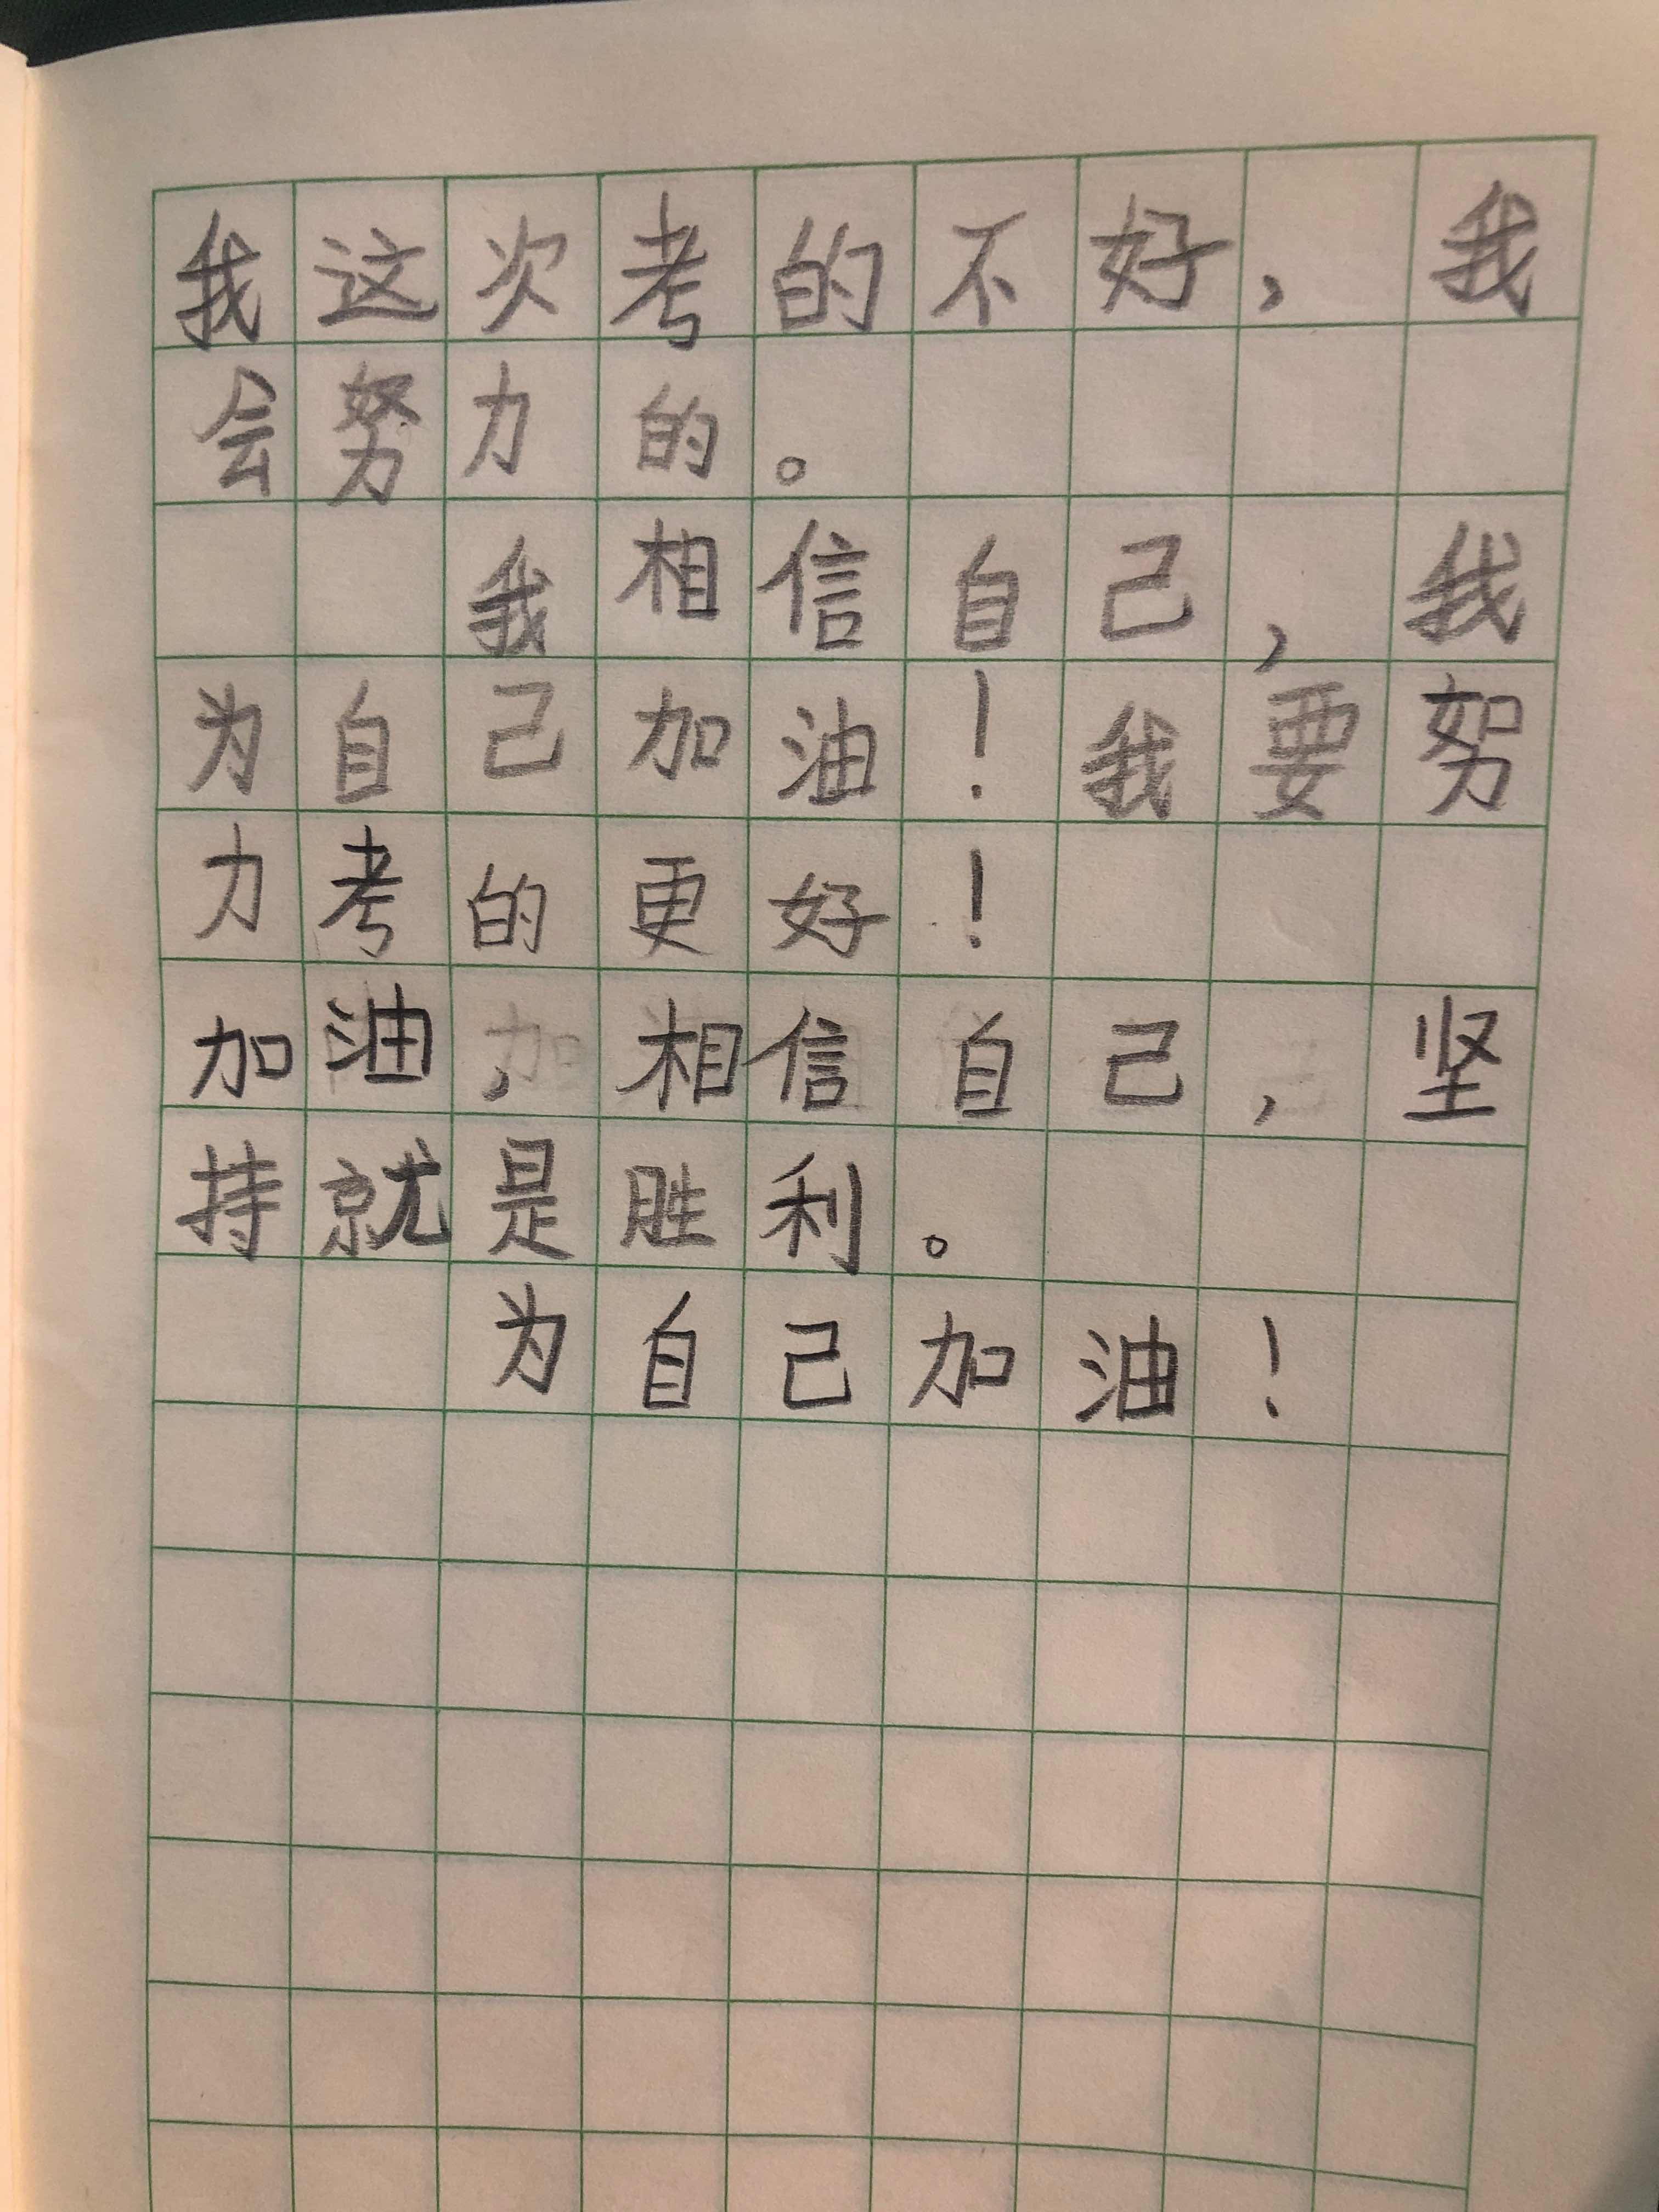 我这次考的不好，我
会努力的。
我相信自己，我
为自己加油！我要努
力考的更好！
加油，相信自己，坚
持就是胜利。
为自己加油！